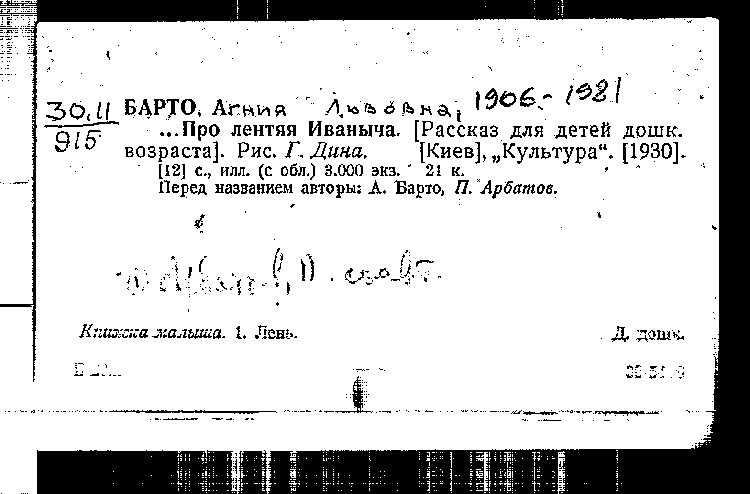 30.11
915
БАРТО, Агния Львовна, 1906.- 1981
...Про лентяя Иваныча. [Рассказ для детей дошк.
возраста]. Рис. Г. Дина. [Киев], „Культура“. [1930].
[12] с., илл. (с обл.) 3.000 экз. 21 к.
Перед названием авторы: А. Барто, П. Арбатов.
Арбатов, П. соавт.
Книжка малыша. 1. Лень. Д. дошк.